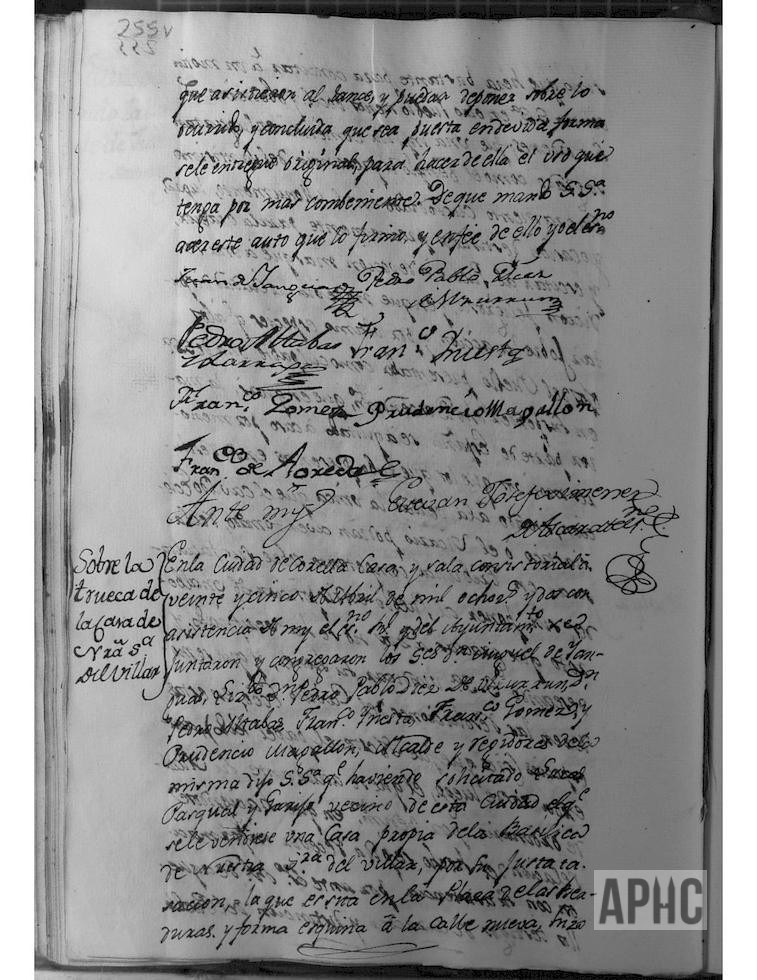 255v
225
que asistieron al lance, y puedan deponer sobre lo
ocurrido, y concluida que sea puesta en devida forma
se le entregue original, para hacer de ella el uso que
tenga por mas combeniente. De que mandó S. Sª
acer este auto que lo firmo, y en fee de ello yo el esno
Pedro Pablo Diez
de Ulzurrun
Pedro Attabas
Franco Ynesta
Franco Gomez Prudencio Magallon
Franco de Agreda
Ante my Estevan Joseph Ximenez
de Ascarate
Sobre la
trueca de
la Casa de
Nrª Sª
del Villar
En la Ciudad de Corella Casa, y sala consistorial a
veinte y cinco de Abril de mil ochoz. y dos con
asistencia de my el esno Rl. y del Ayuntamto. de ella se
juntaron y congregaron los Sres Dn. Miguel de
Dn. Pedro Pablo Diez de Ulzurrun, Dn.
Pedro Attabas, Franco Ynesta, Franco Gomez, y
Prudencio Magallon, Alcalde y regidores de la
misma dijo S. Sª qe. haviendo solicitado
Pasqual y vecino de esta Ciudad el qe.
se le vendiese una Casa propia de la Basilica
de Nuestra Sra del Villar, por su justa ta-
sacion, la que es sita en la Plaza de las Her-
duras, y forma esquina á la calle nueva, hizo
APHC